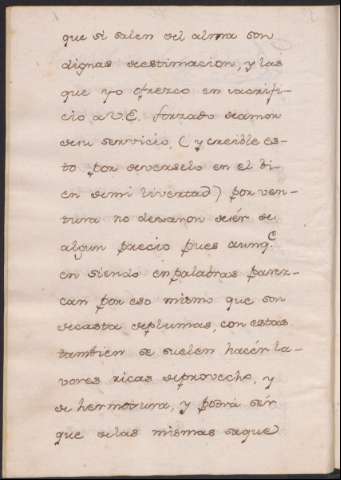 que si salen del alma son
dignas destimacion, y las
que yo ofrezco en sacrifi-
cio a V.E. forzado de amor
de su servicio, (y creible es-
to por deverselo en el bi-
en de mi livertad) por ven-
tura no dexaron de sér de
algun precio pues aunq.e
en siendo en palabras parez-
can por eso mismo que son
de casta de plumas, con estas
tambien se suelen hacér la-
vores ricas de provecho, y
de hermosura, y podrá sér
que de las mismas saque